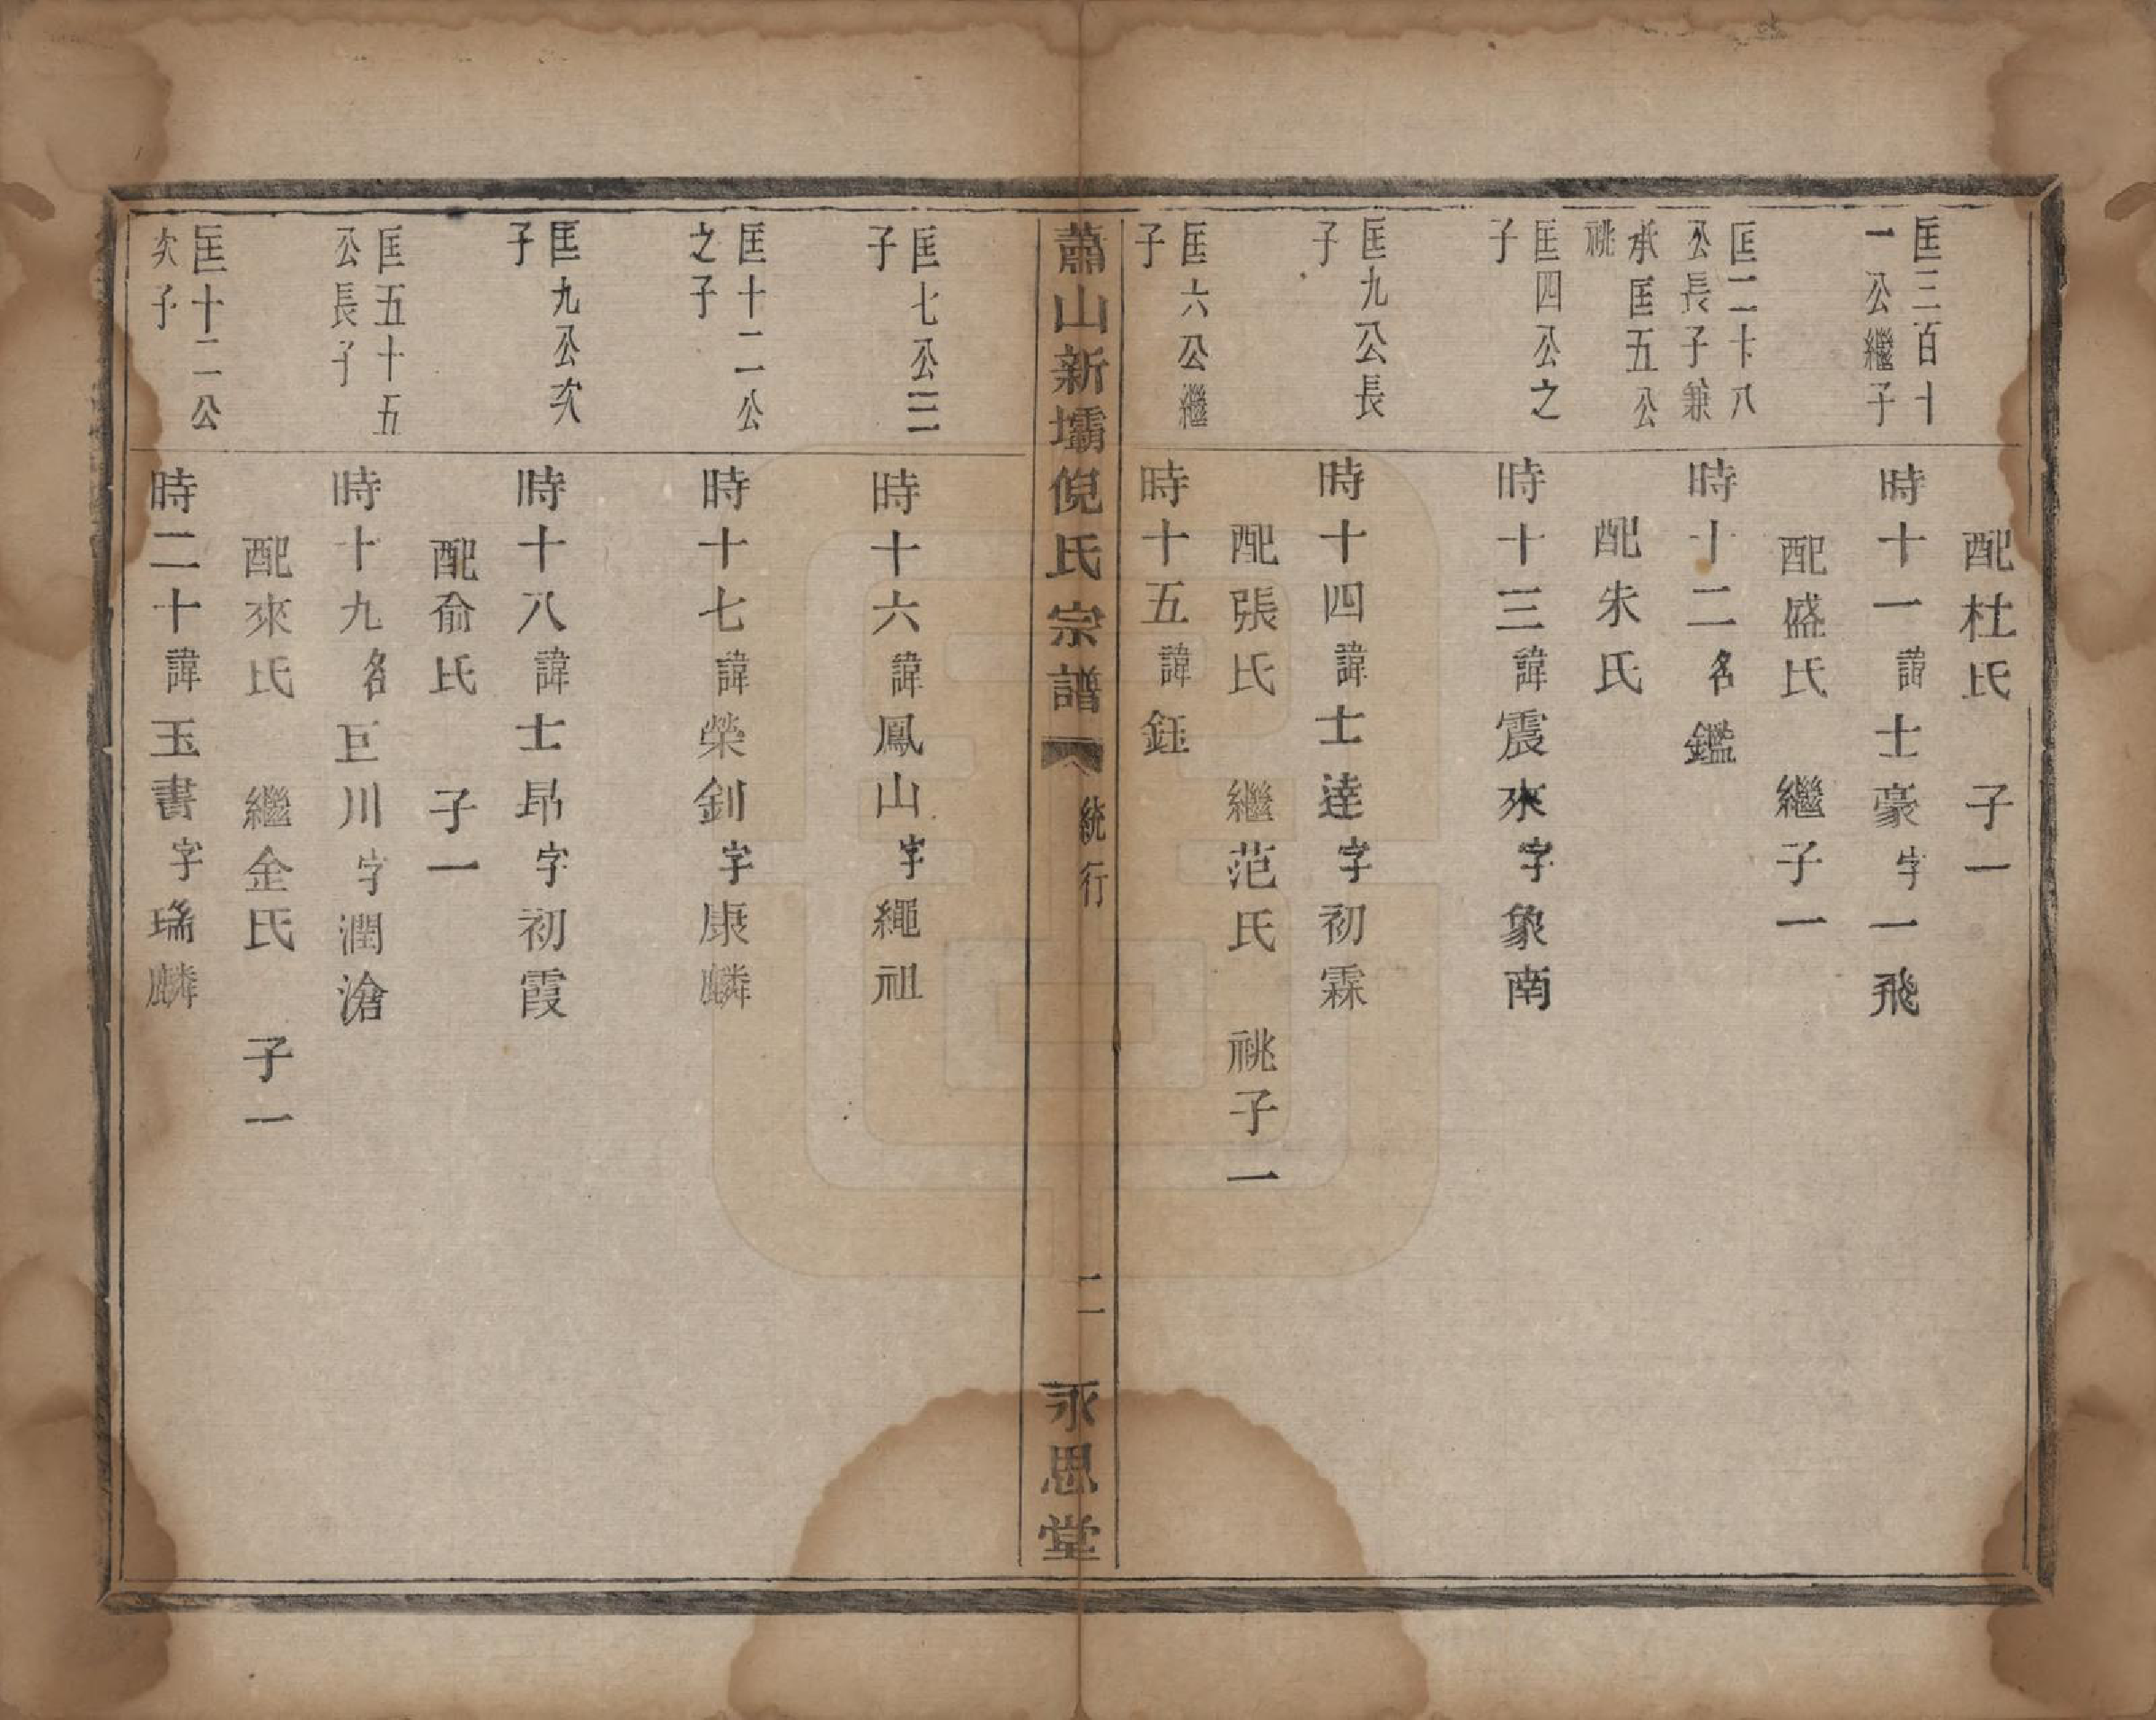 配杜氏　子一
匡三百十
一公繼子
時十一諱士豪字一飛
配盛氏　繼子一
匡二十八
公長子兼
承匡五公
祧
時十二名鑑
配朱氏
匡四公之
子
時十三諱震來字象南
匡九公長
子
時十四諱士達字初霖
配張氏　繼范氏　祧子一
匡六公繼
子
時十五諱鈺
蕭山新壩倪氏宗譜　統行　二　永思堂
匡七公三
子
時十六諱鳳山字繩祖
匡十二公
之子
時十七諱榮釗字康麟
匡九公次
子
時十八諱士昂字初霞
配俞氏　子一
匡五十五
公長子
時十九名巨川字潤滄
配來氏　繼金氏　子一
匡十二公
次子
時二十諱玉書字瑞麟